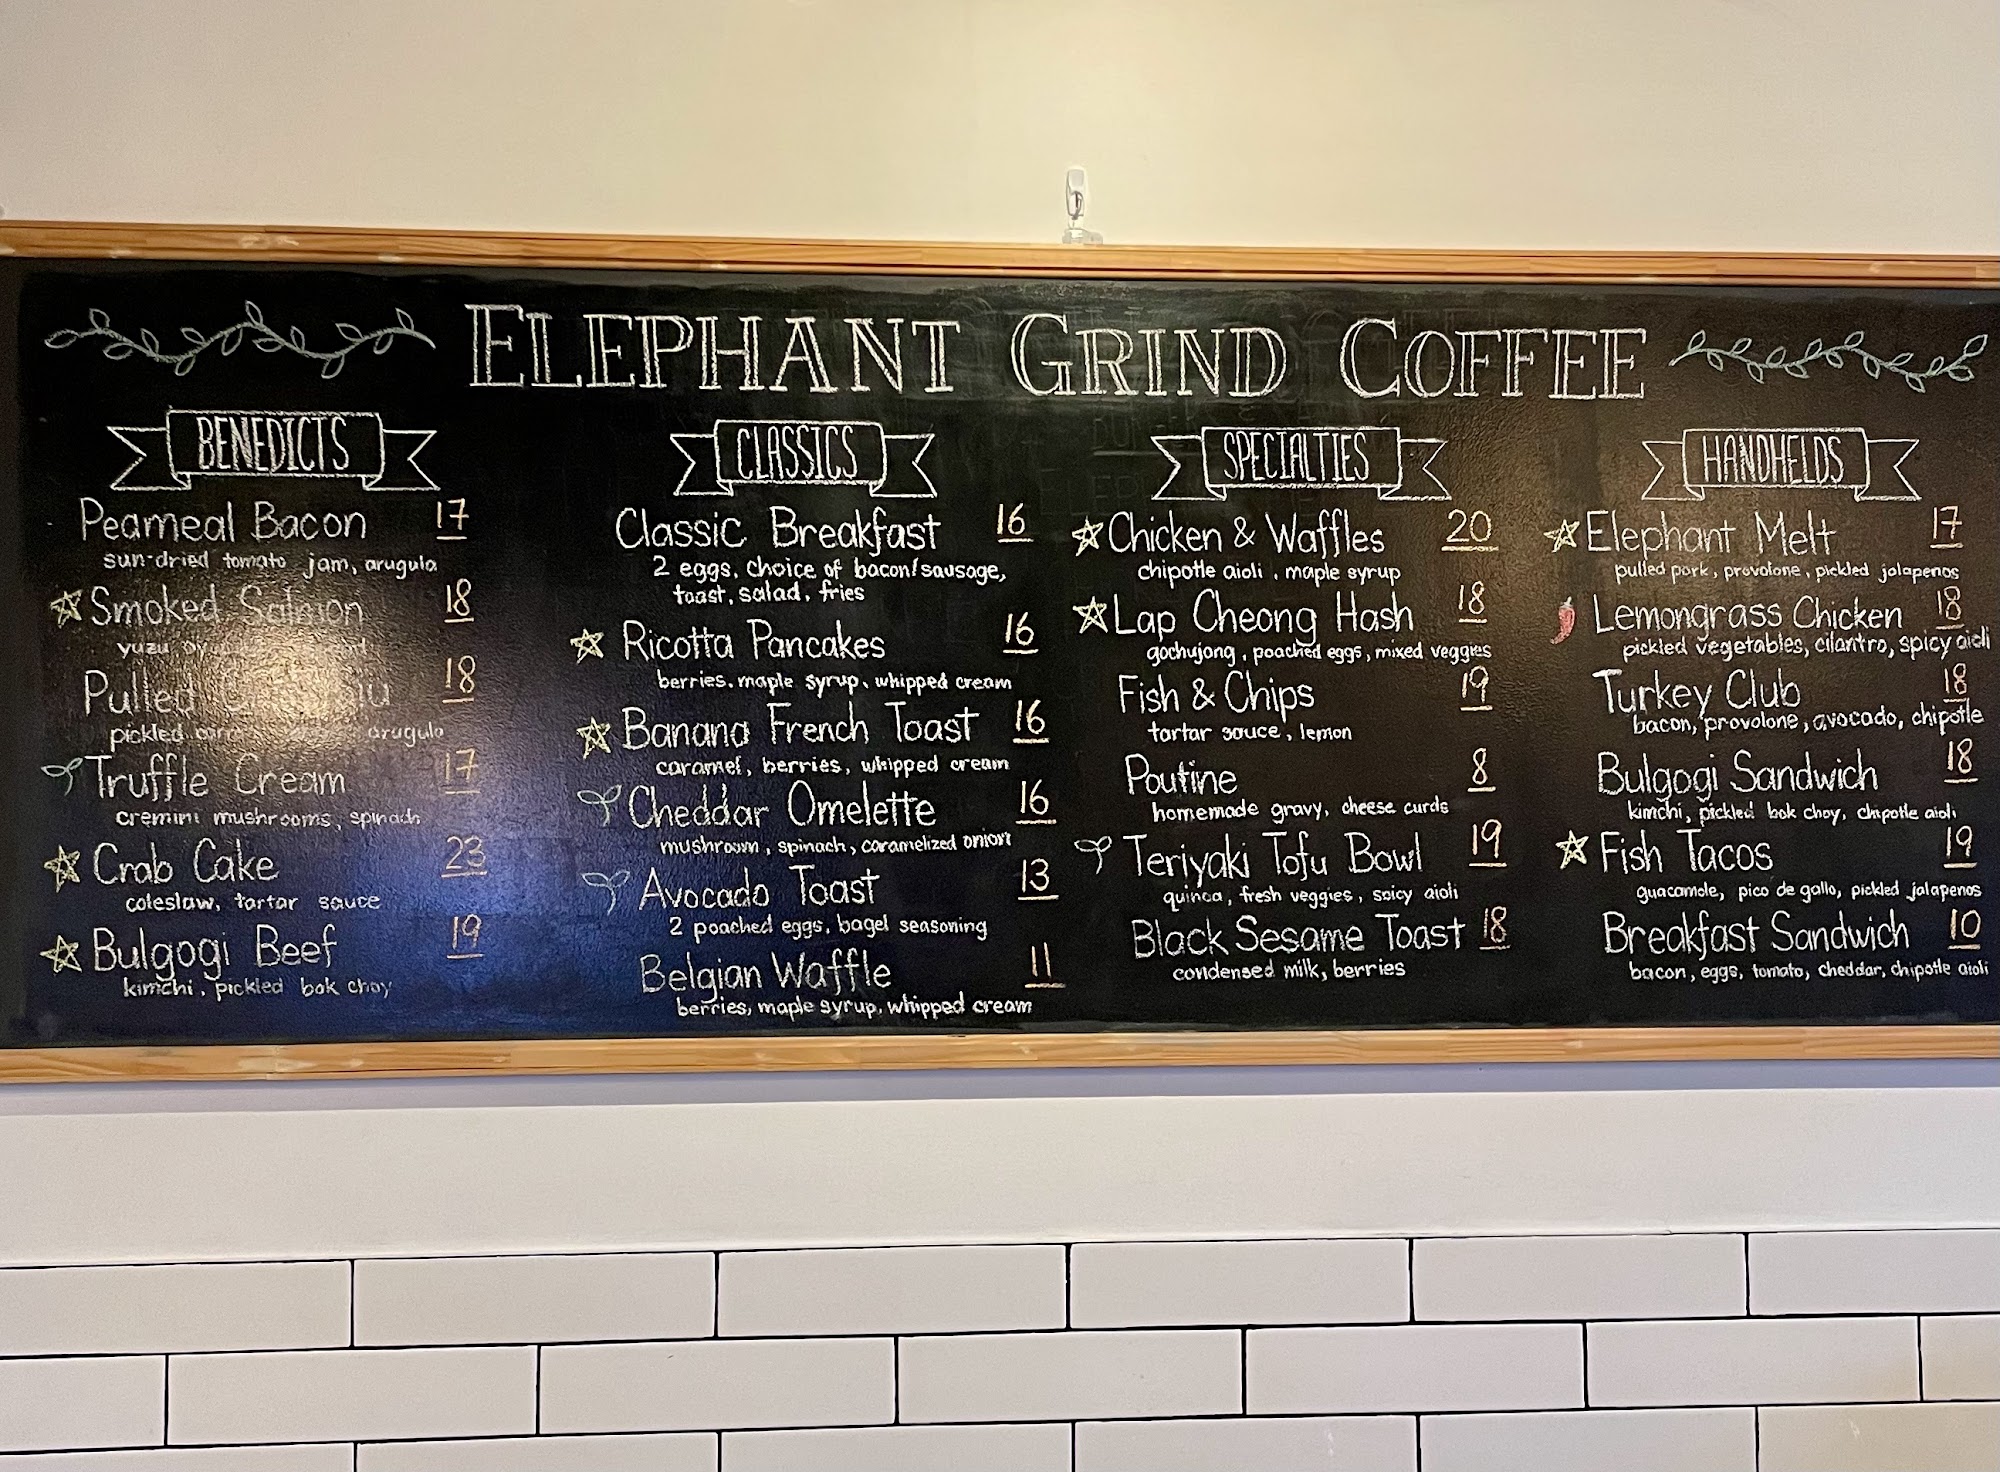 ELEPHANT GRIND COFFEE
BENEDICTS
Peameal Bacon 17
sun-dried tomato jam, arugula
Smoked Salmon 18
yuzu
Pulled 18
pickled arugula
Truffle Cream 17
cremini mushrooms, spinach
Crab Cake 23
coleslaw, tartar sauce
Bulgogi Beef 19
kimchi, pickled bok choy
CLASSICS
Classic Breakfast 16
2 eggs, choice of bacon/sausage,
toast, salad, fries
Ricotta Pancakes 16
berries, maple syrup, whipped cream
Banana French Toast 16
caramel, berries, whipped cream
Cheddar Omelette 16
mushroom, spinach, caramelized onion
Avocado Toast 13
2 poached eggs, bagel seasoning
Belgian Waffle 11
berries, maple syrup, whipped cream
SPECIALTIES
Chicken & Waffles 20
chipotle aioli, maple syrup
Lap Cheong Hash 18
gochujong, poached eggs, mixed veggies
Fish & Chips 19
tartar sauce, lemon
Poutine 8
homemade gravy, cheese curds
Teriyaki Tofu Bowl 19
quinoa, fresh veggies, spicy aioli
Black Sesame Toast 18
condensed milk, berries
HANDHELDS
Elephant Melt 17
pulled pork, provolone, pickled jalapenos
Lemongrass Chicken 18
pickled vegetables, cilantro, spicy aioli
Turkey Club 18
bacon, provolone, avocado, chipotle
Bulgogi Sandwich 18
kimchi, pickled bok choy, chipotle aioli
Fish Tacos 19
guacamole, pico de gallo, pickled jalapenos
Breakfast Sandwich 10
bacon, eggs, tomato, cheddar, chipotle aioli